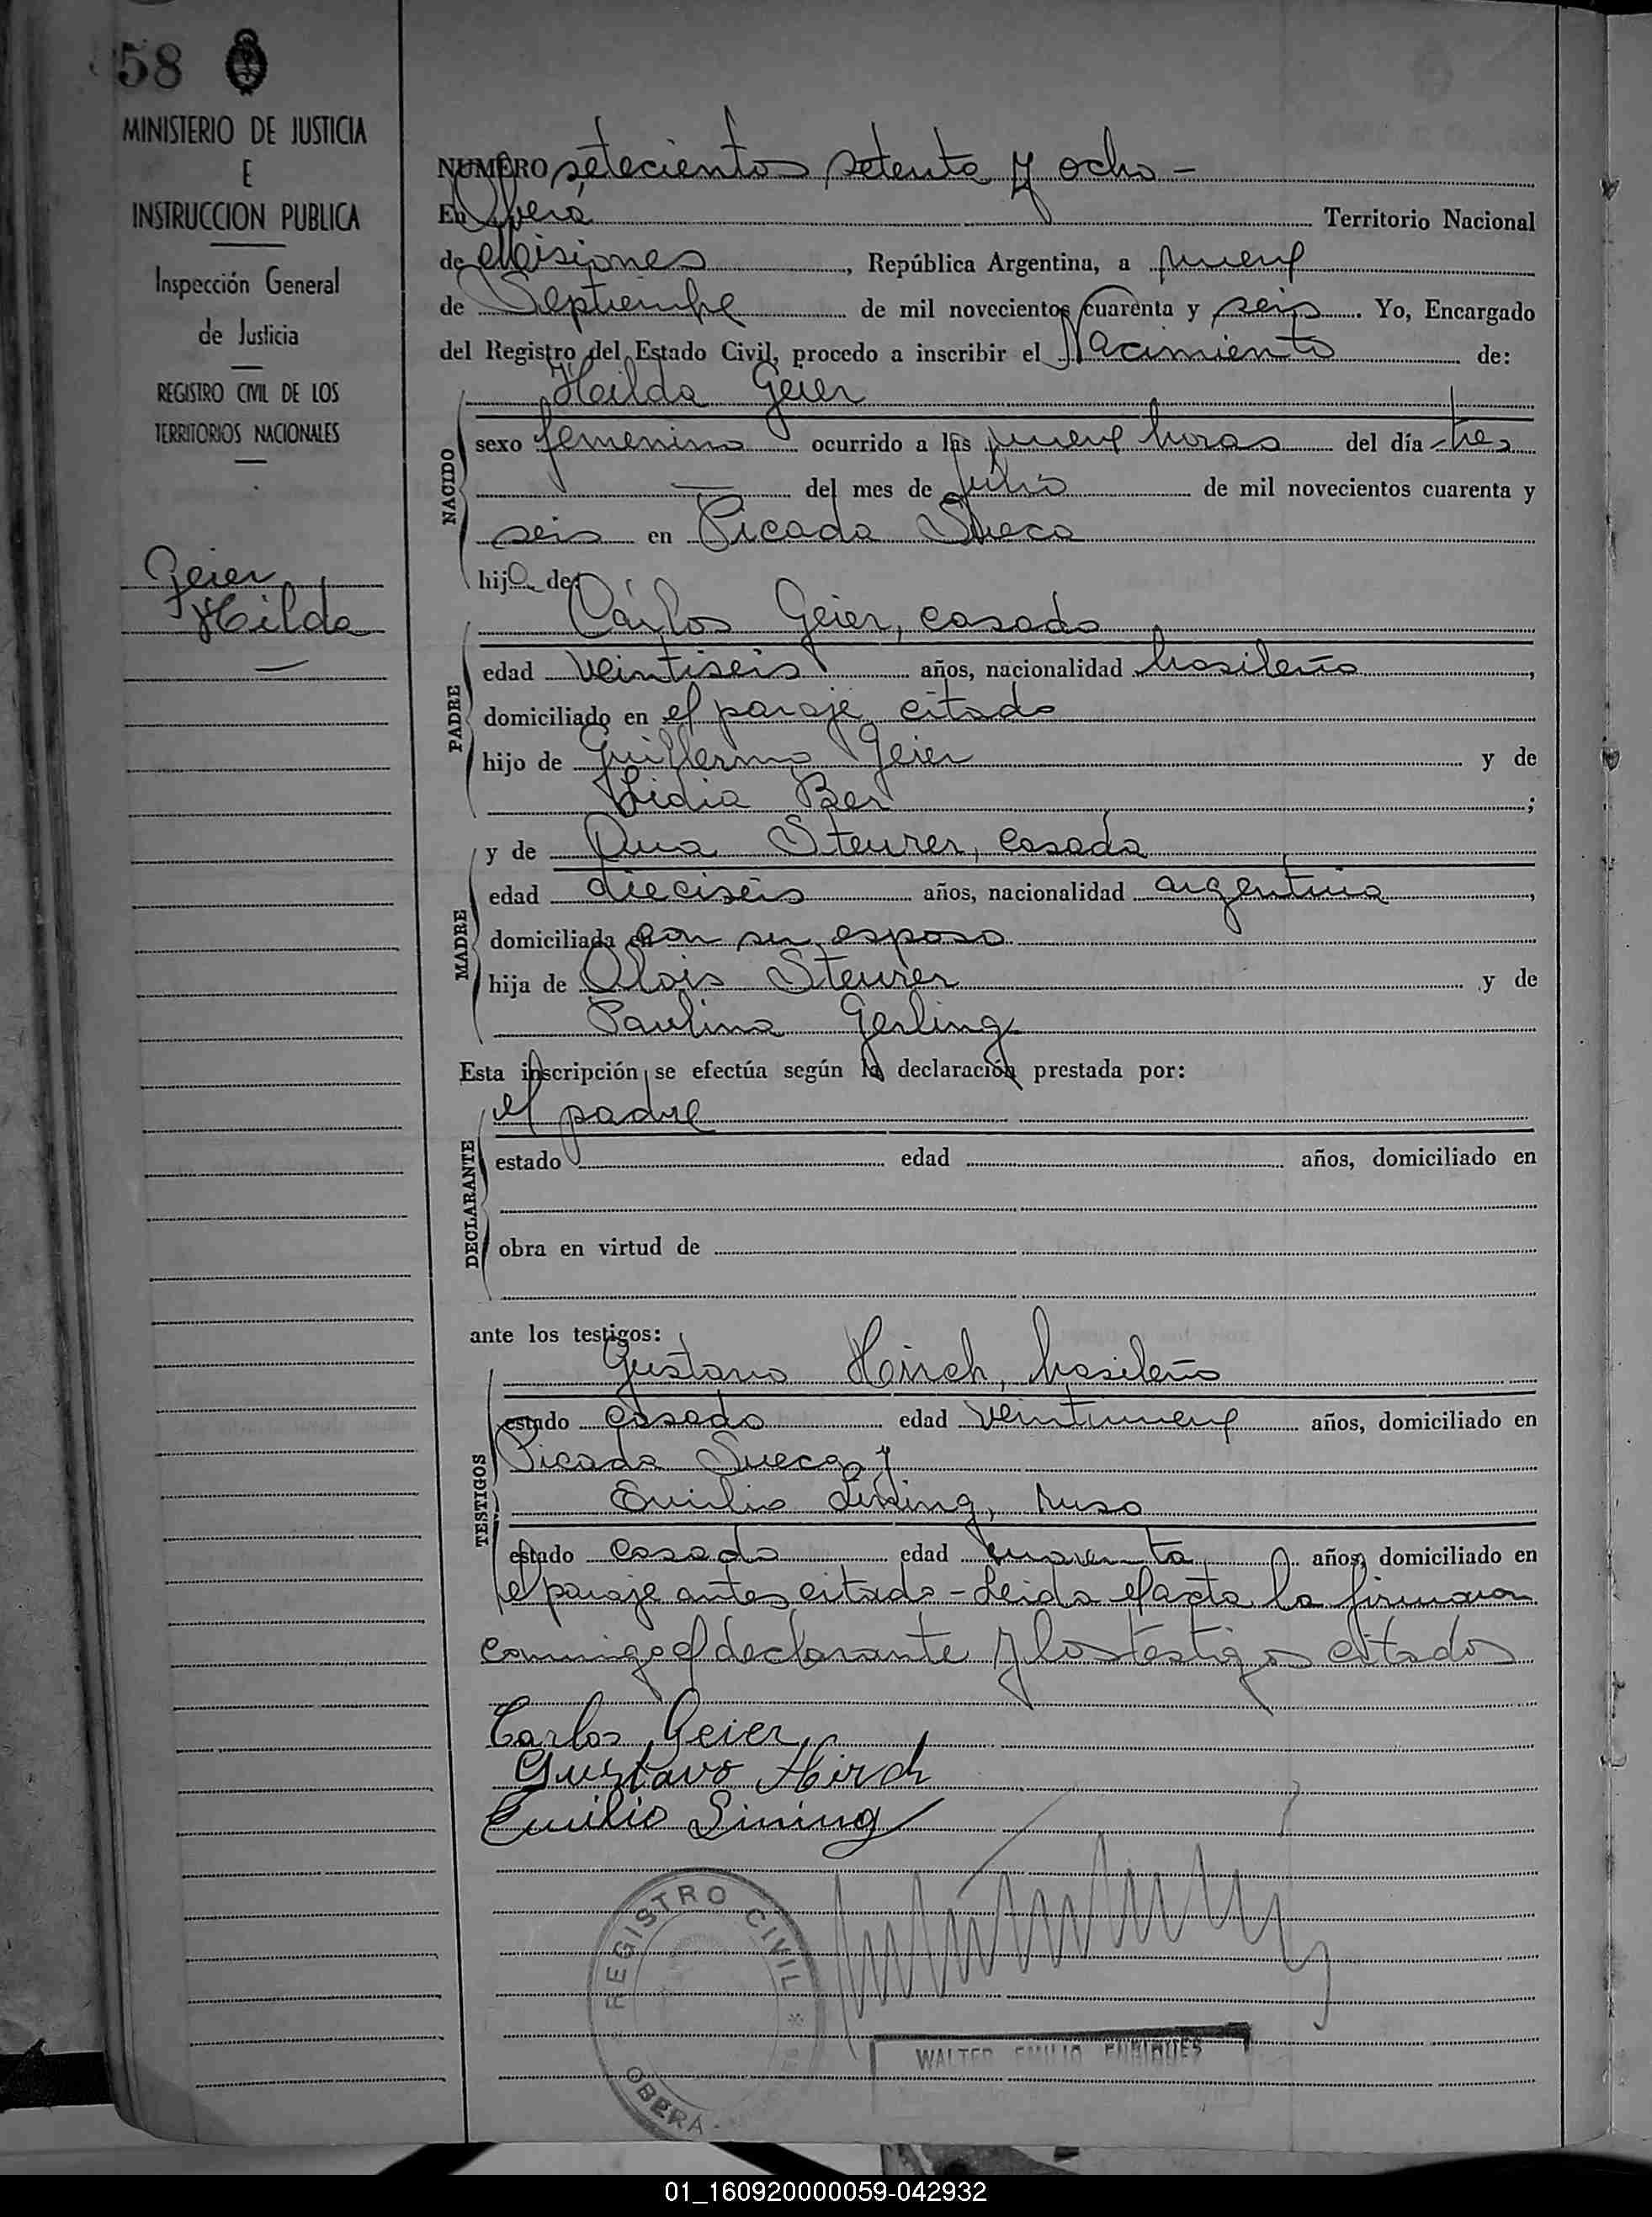 58
MINISTERIO DE JUSTICIA
E
INSTRUCCION PUBLICA
Inspección General
de Justicia
REGISTRO CIVIL DE LOS
TERRITORIOS NACIONALES
Geier
Hilda
NUMERO setecientos setenta y ocho -
En Oberá Territorio Nacional
de Misiones, República Argentina, a nueve
de Septiembre de mil novecientos cuarenta y seis. Yo, Encargado
del Registro del Estado Civil, procedo a inscribir el Nacimiento de:
NACIDO
Hilda Geier
sexo femenino ocurrido a las nueve horas del día tres
— del mes de Julio de mil novecientos cuarenta y
seis en Picada Sueca
hija de:
PADRE
Cárlos Geier, casado
edad veintiseis años, nacionalidad brasileño,
domiciliado en el paraje citado
hijo de Guillermo Geier y de
Lidia Ber;
MADRE
y de Ana Steurer, casada
edad dieciseis años, nacionalidad argentina,
domiciliada en con su esposo
hija de Alois Steurer y de
Paulina Gerling
Esta inscripción se efectúa según la declaración prestada por:
DECLARANTE
el padre
estado edad años, domiciliado en
obra en virtud de
ante los testigos:
TESTIGOS
Gustavo Hirch, brasileño
estado casado edad veintinueve años, domiciliado en
Picada Sueca y
Emilio Lining, ruso
estado casado edad cuarenta años, domiciliado en
el paraje antes citado - Leida el acta la firmaron
conmigo el declarante y los testigos citados
Carlos Geier
Gustavo Hirch
Emilio Lining
REGISTRO CIVIL
OBERA
WALTER EMILIO ENRIQUES
01_160920000059-042932